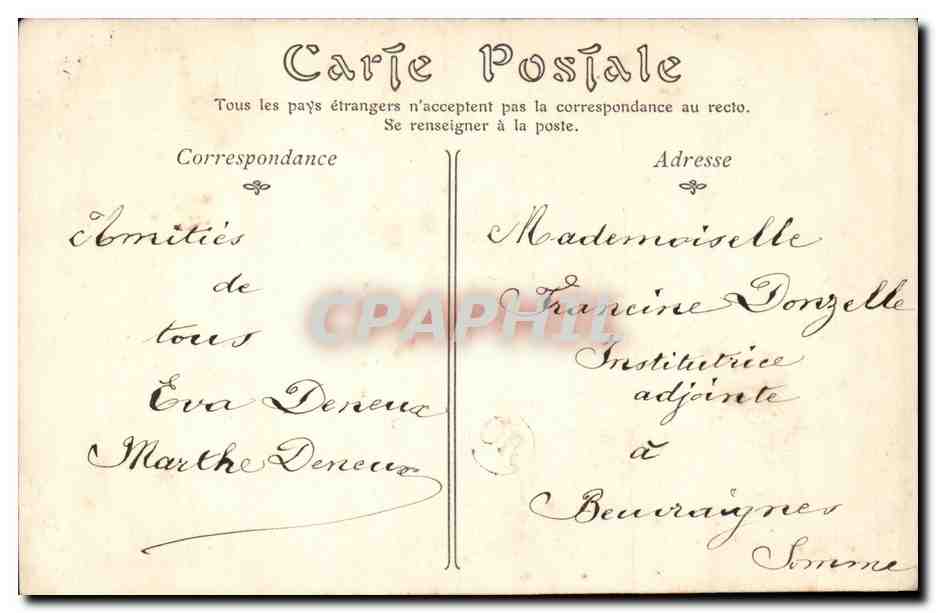 Carte Postale
Tous les pays étrangers n'acceptent pas la correspondance au recto.
Se renseigner à la poste.
Correspondance
Amitiés
de
tous
Eva Deneux
Marthe Deneux
Adresse
Mademoiselle
Francine Donzelle
Institutrice
adjointe
à
Beuvraignes
Somme
CPAPHIL